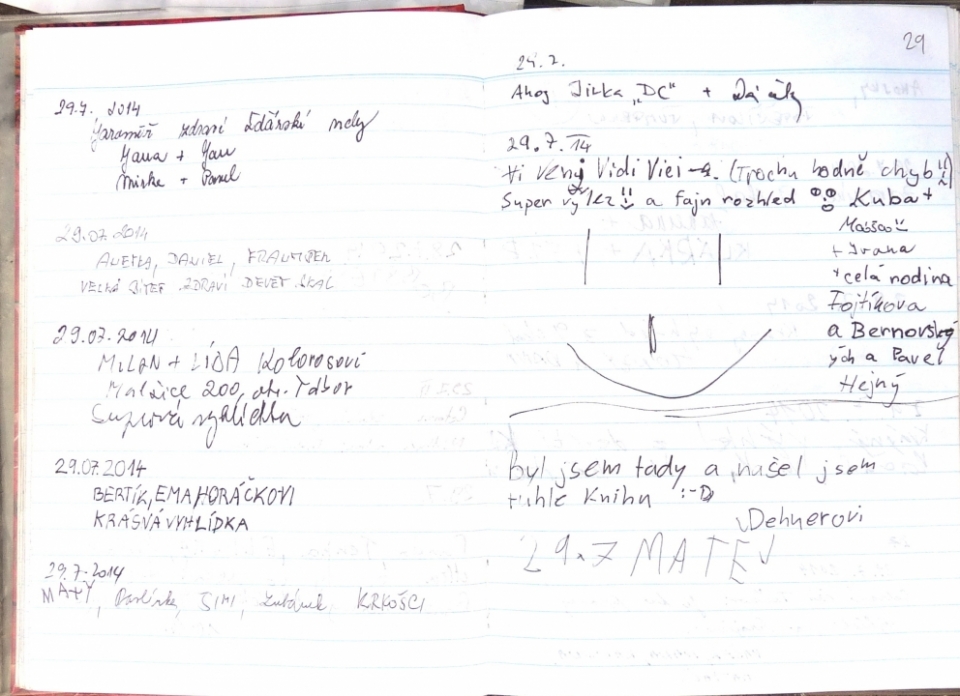 29.7. 2014
Jaroměř zdraví Žďárské
Jana + Jan
Mirka + Pavel
29.07.2014
ANETKA, DANIEL, FRANTIŠEK
VELKÁ BÍTEŠ ZDRAVÍ DEVĚT SKAL
29.07.2014
MILAN + LÍDA
Malšice 200, okr. Tábor
Suprová vyhlídka
29.07.2014
BERTÍK, EMA HORÁČKOVI
KRÁSVÁ VYHLÍDKA
29.7.2014
MATY, Pavlínka, JIMI, Lubánek KRKOŠCI
29
24.7.
Ahoj Jirka "DC" +
29.7.14
Veny Vidi Vici (Trochu hodně chyb
Super výlet a fajn rozhled Kuba +
+ Ivana
+ celá rodina
Fojtíkova
a Bernovský
ých a Pavel
Hejný
byl jsem tady a našel jsem
tuhle knihu :-D
Dehnerovi
29.7 MATEJ